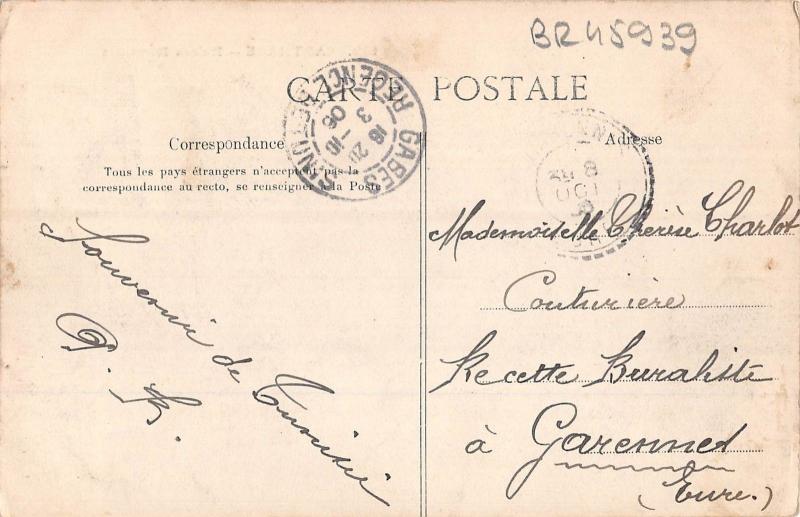 BR45939
CARTE POSTALE
Correspondance
Adresse
Tous les pays étrangers n'acceptent pas la
correspondance au recto, se renseigner à la Poste
GABES
REGENCE DE TUNIS
16 20
3 -10
06
Souvenir de Tunisie
P. K.
Mademoiselle Thérèse Charlot
Couturière
Recette Buraliste
à Garennes
(Eure.)